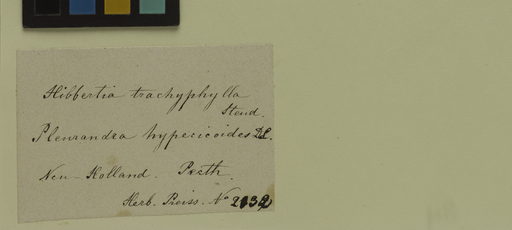 Hibbertia trachyphylla
Steud.
Pleurandra hypericoides DC.
Neu-Holland. Perth.
Herb. Preiss. No 2132